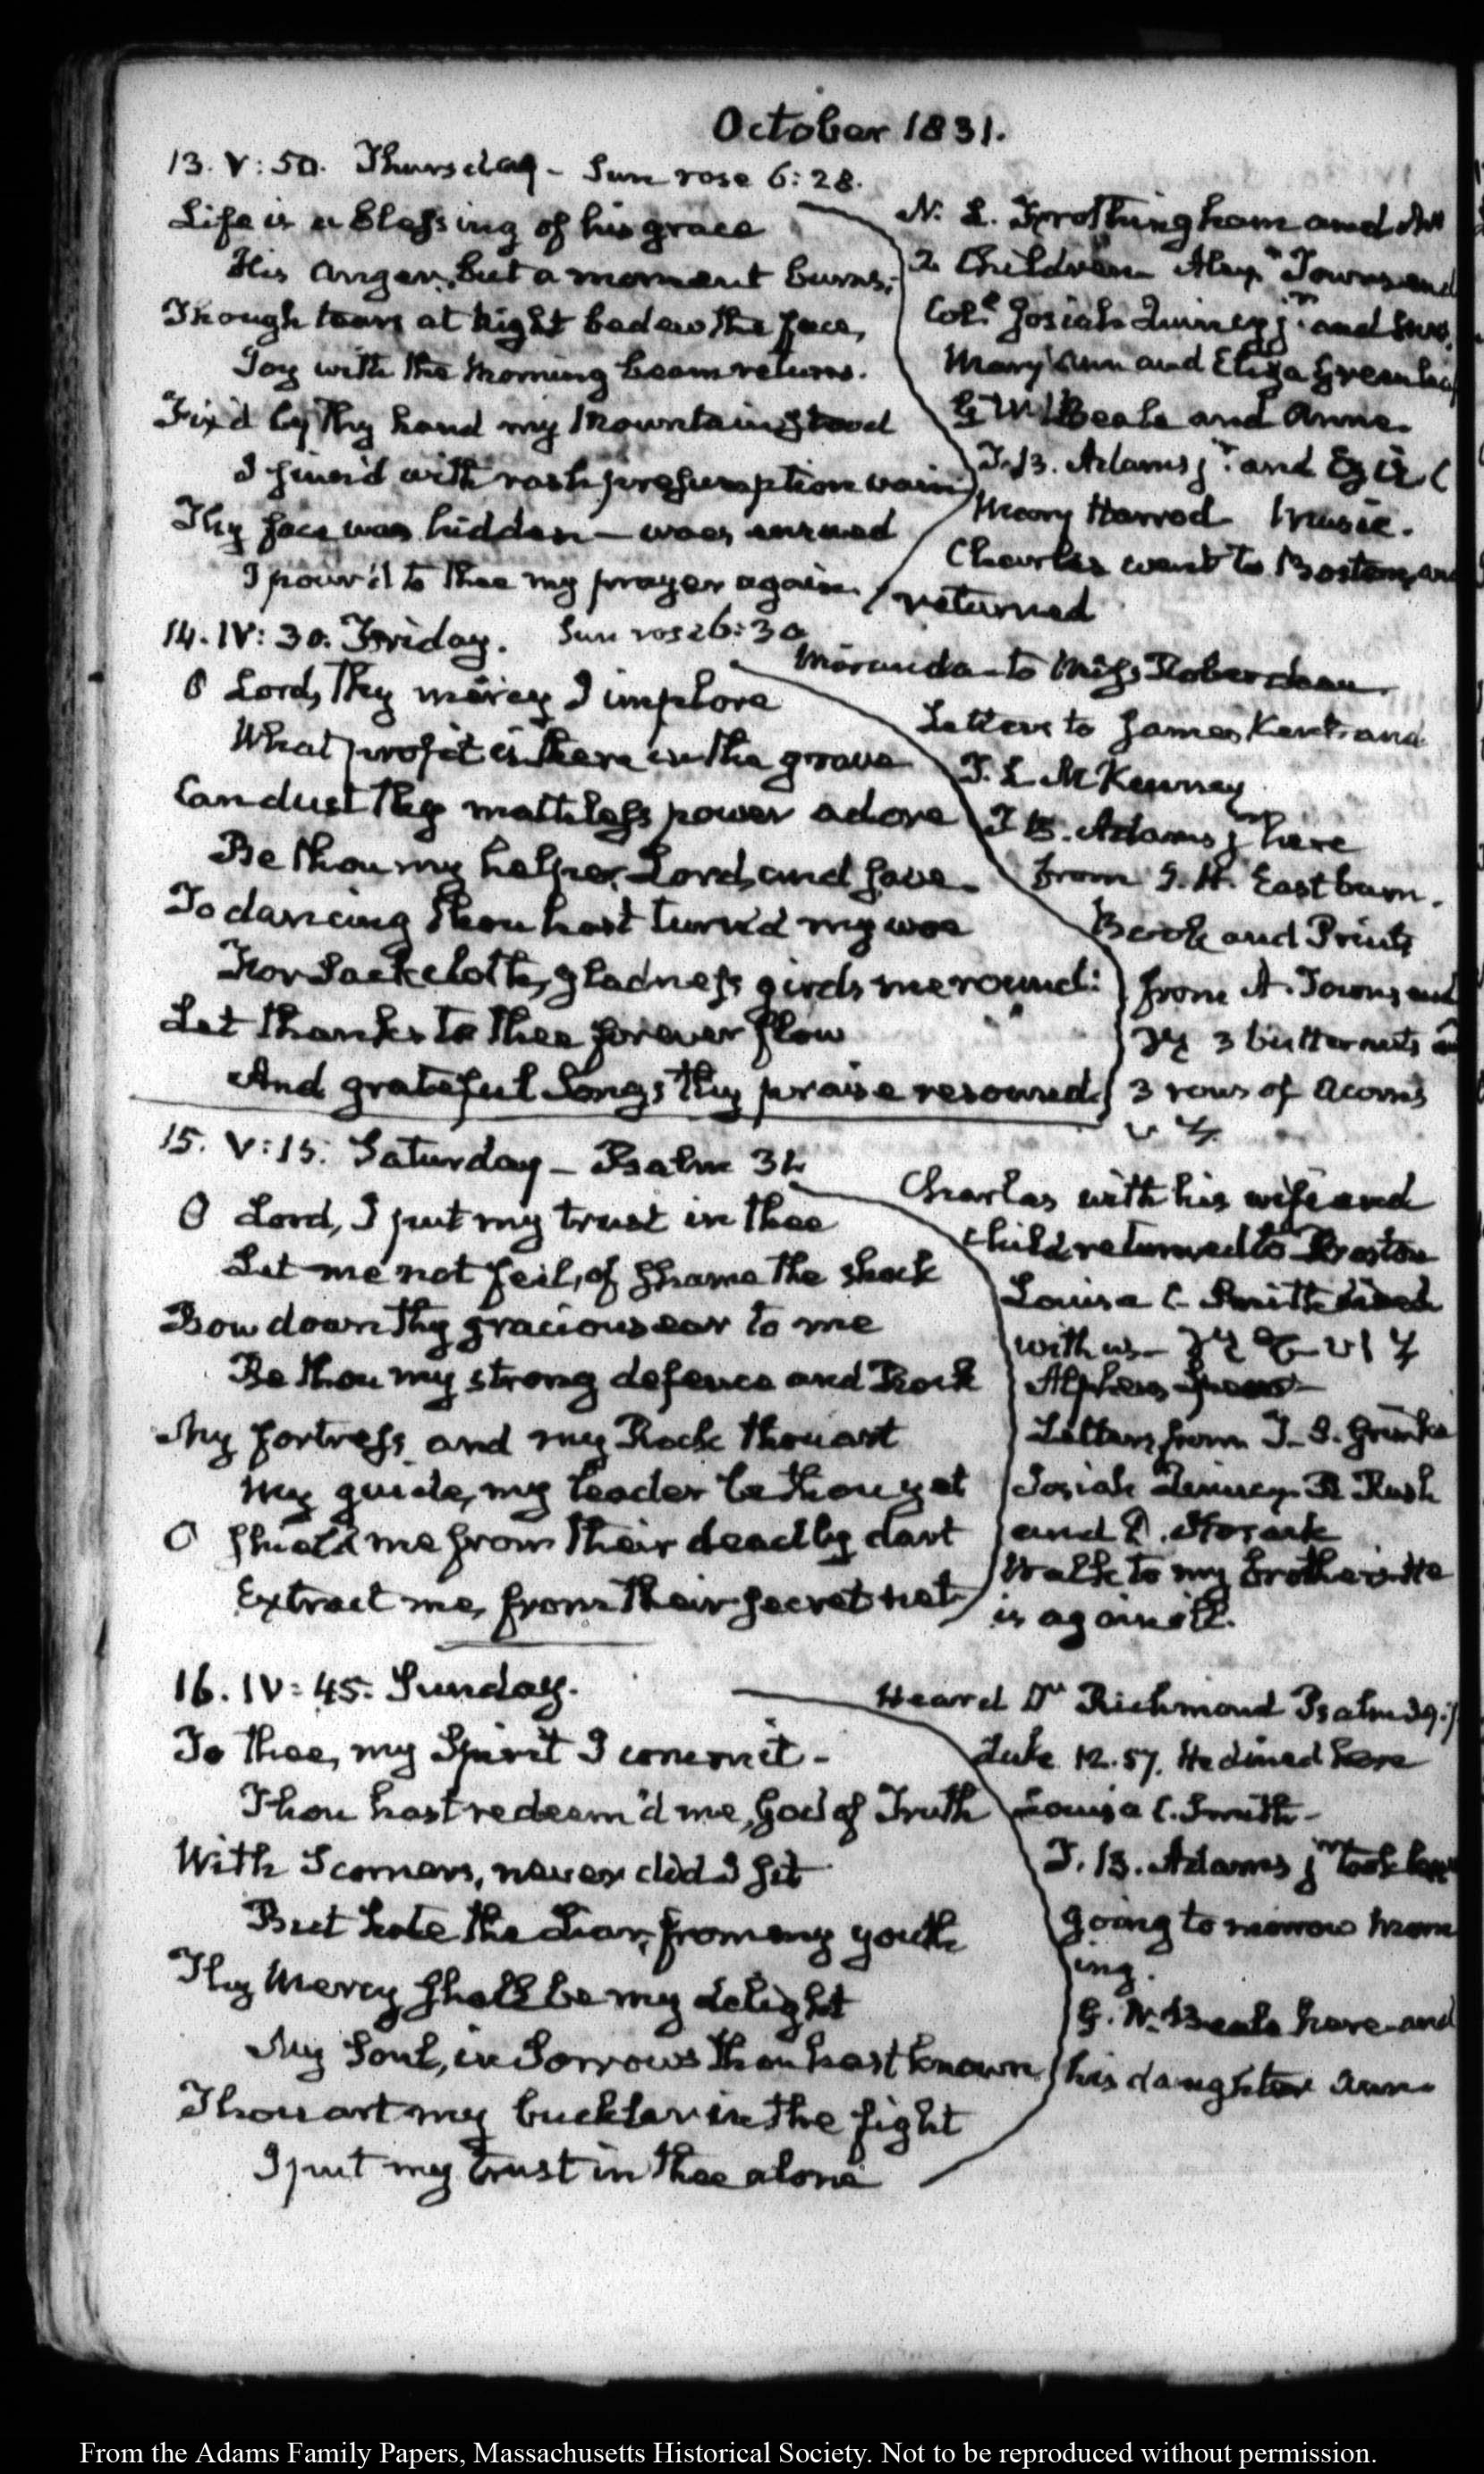 October 1831.
13. V:50. Thursday - Sun rose 6:28.
Life is a blessing of his grace
His anger, but a moment burns;
Though tears at Night bedew the face,
Joy with the Morning beam returns.
Fix'd by thy hand my Mountain stood
I sinn'd with rash presumption vain
Thy face was hidden — woes ensued
I pour'd to thee my prayer again.
N. L. Frothingham and
2 Children Alexr Townsend
Coll Josiah Quincy jr and Mrs.
Mary Ann and Eliza Greenleaf
G W Beale and Anne.
T. B. Adams jr and
Mary Harrod Music.
Charles went to Boston, and
returned
14. IV:30. Friday. Sun rose 6:30
O Lord, thy mercy I implore
What profit is there in the grave
Can dust thy matchless power adore
Be thou my helper, Lord, and save.
To dancing thou hast turn'd my woe
For Sackcloth, gladness girds me round:
Let thanks to thee forever flow
And grateful Songs thy praise resound.
Miranda to Miss Roberdeau
Letters to James Kent and
T. L. McKenney
T B. Adams jnr here
from S. H. Eastburn.
Book and Prints
from A. Townsend
3 butternuts
3 rows of Acorns
15. V:15. Saturday - Psalm 31.
O Lord, I put my trust in thee
Let me not feel, of shame the shock
Bow down thy gracious ear to me
Be thou my strong defence and Rock
My fortress and my Rock thou art
My guide, my leader be thou yet
O shield me from their deadly dart
Extract me, from their secret net.
Charles with his wife and
child returned to Boston
Louisa C. Smith dined
with us
Alpheus
Letters from T. S. Grimke
Josiah Quincy. R Rush
and
Walk to my brother's. He
is again ill.
16. IV:45. Sunday.
To thee, my Spirit I commit -
Thou hast redeem'd me, God of Truth
With Scorners, never did I sit
But hate the Liar, from my youth
Thy Mercy shall be my delight
My Soul, in Sorrows thou hast known
Thou art my buckler in the fight
I put my trust in thee alone
Heard Dr Richmond Psalm 39.
Luke 12.57. He dined here
Louisa C. Smith -
T. B. Adams jnr took leave
going to morrow morn
ing.
G. W. Beale here and
his daughter Ann.
From the Adams Family Papers, Massachusetts Historical Society. Not to be reproduced without permission.